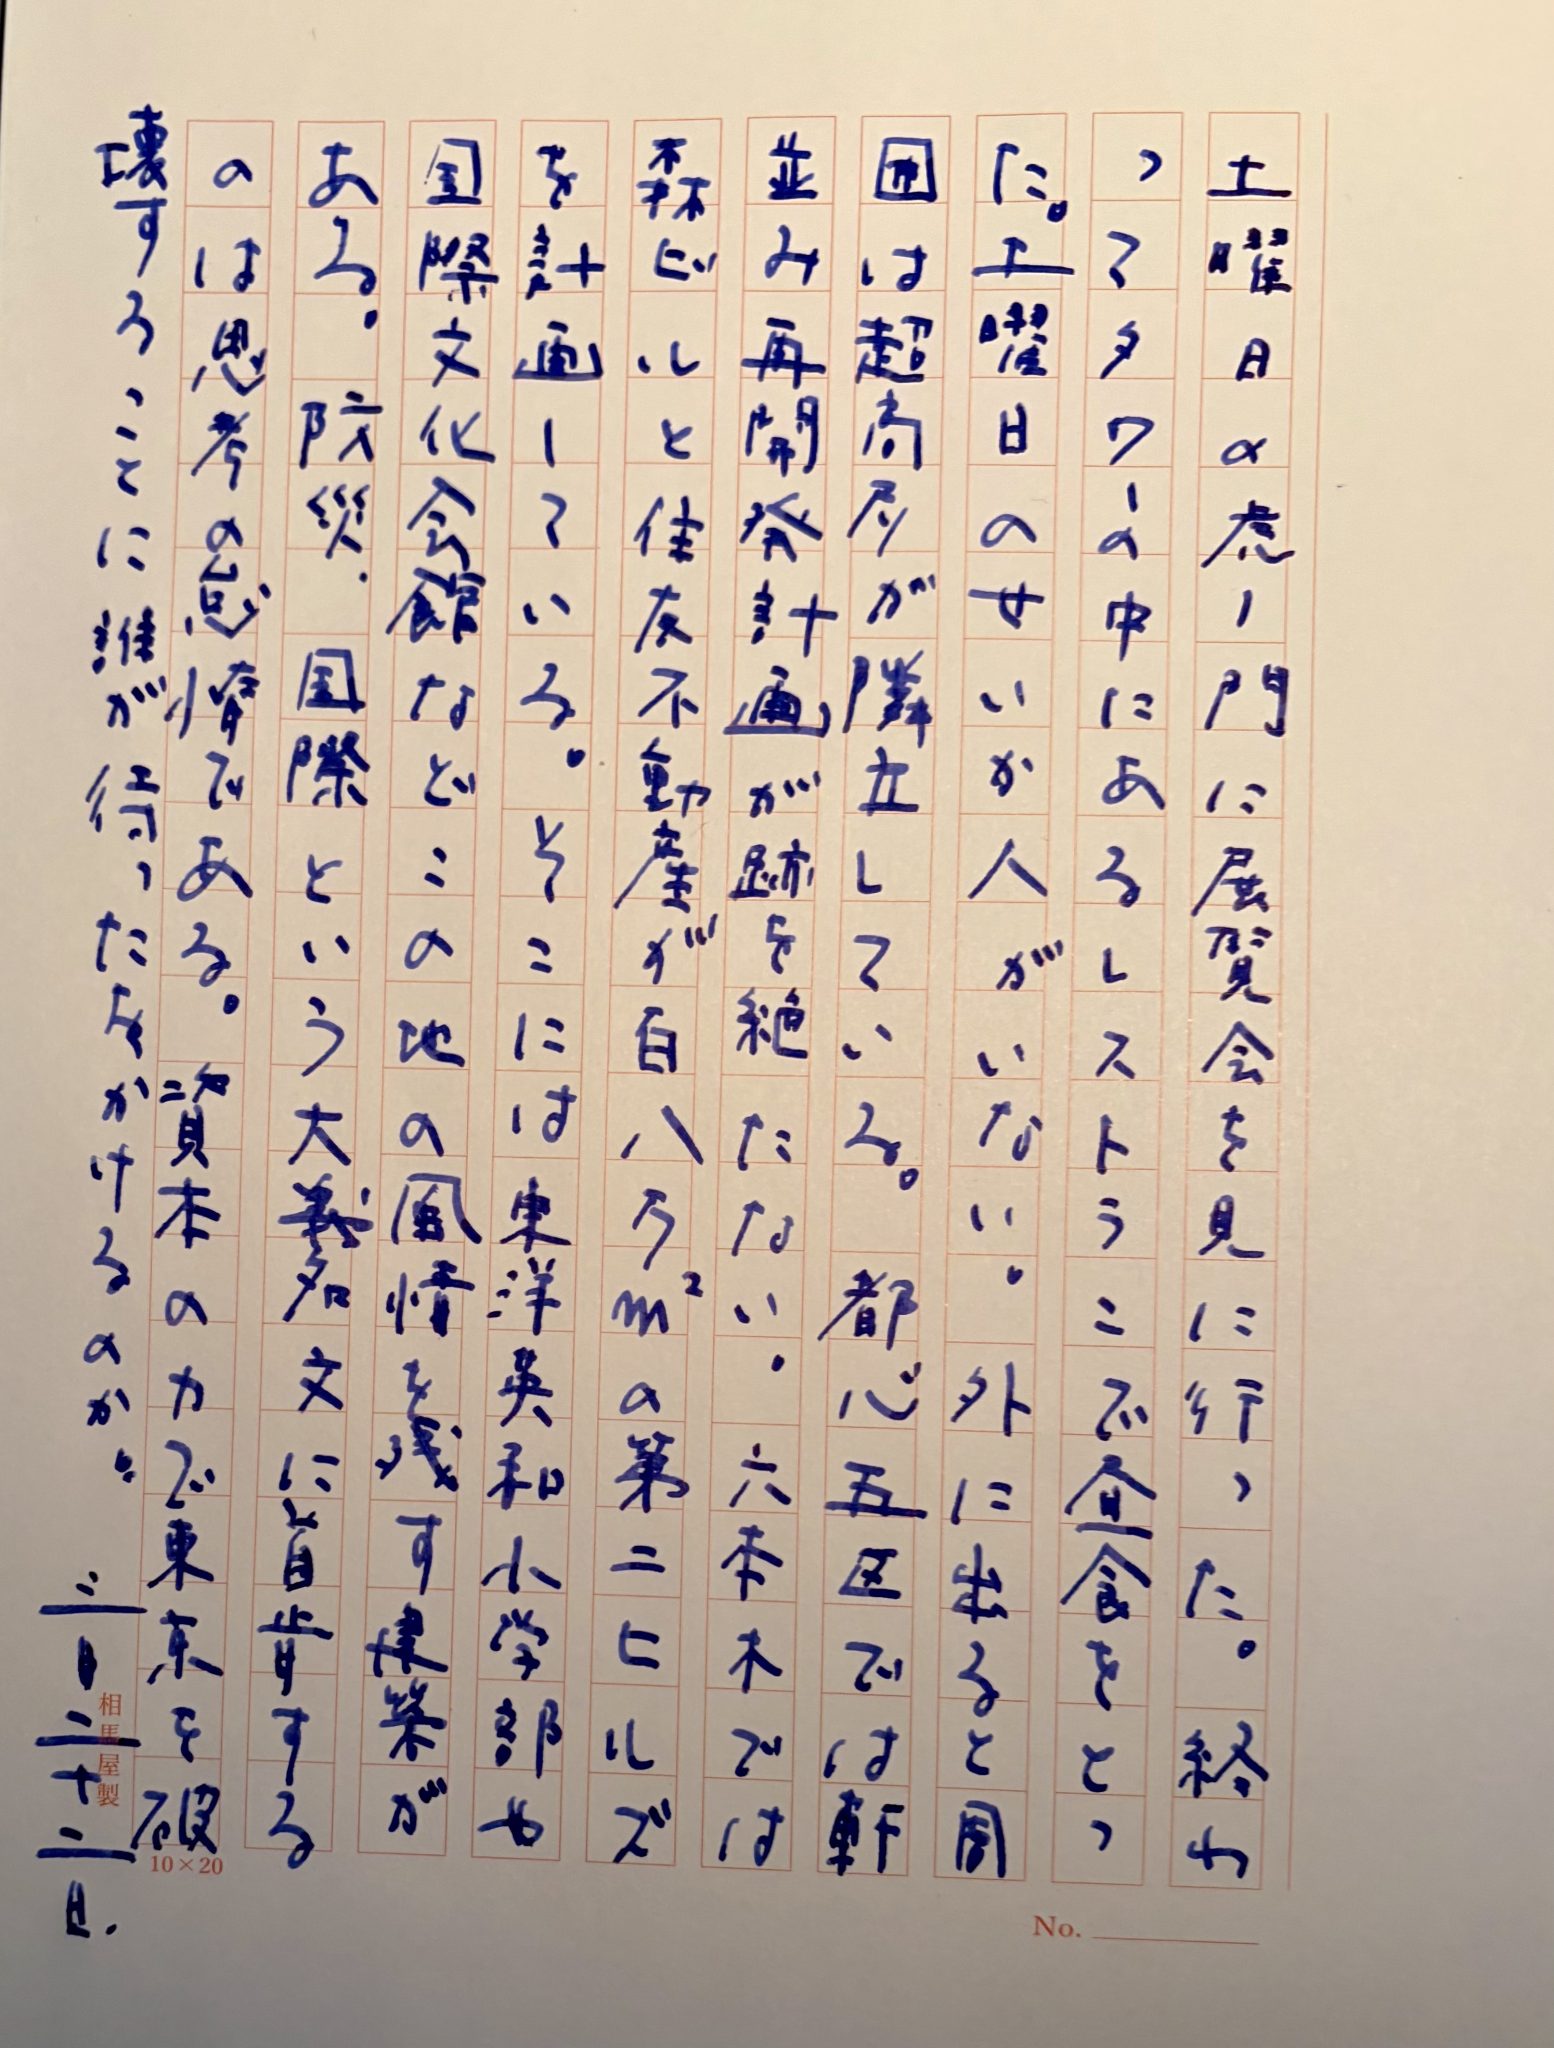 土曜日の虎ノ門に展覧会を見に行った。終わ
ってタワーの中にあるレストランで昼食をとっ
た。土曜日のせいか人がいない。外に出ると周
囲は超高層が隣立している。都心五区では軒
並み再開発計画が跡を絶たない。六本木では
森ビルと住友不動産が百八万m²の第二ヒルズ
を計画している。そこには東洋英和小学部や
国際文化会館などこの地の風情を残す建築が
ある。防災、国際という大義名文に首肯する
のは思考の怠惰である。資本の力で東京を破
壊することに誰が待ったをかけるのか。
三月二十二日.
相馬屋製
10×20
No.